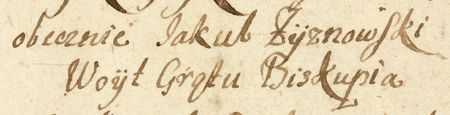 obecznie Jakub Żyznowski
Woyt Grętu Biskupia